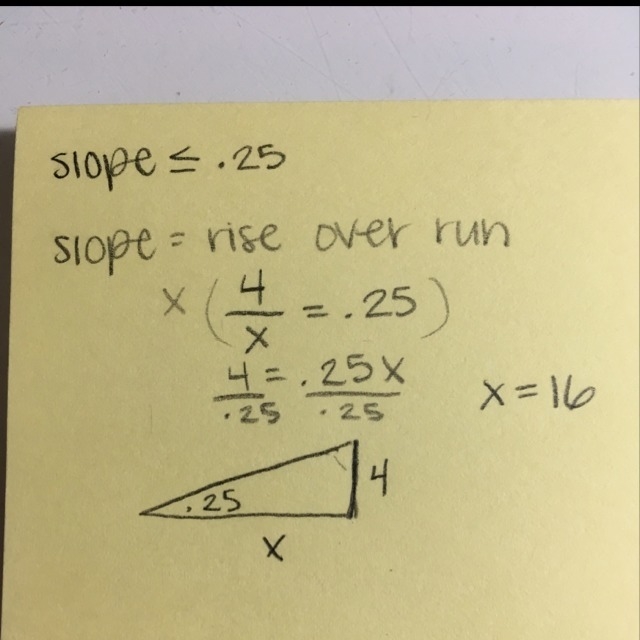 slope ≤ .25
slope = rise over run
x ( 4/x = .25 )
4/.25 = .25x/.25
x = 16
.25
4
x